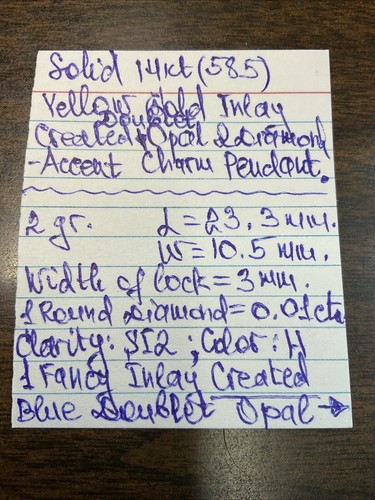 Solid 14kt (585)
Yellow Gold Inlay
Doublet
Created Opal & Diamond
-Accent Charm Pendant.
2 gr. L=23,3 mm.
W=10.5 mm.
Width of lock=3mm.
1 Round Diamond=0.01ctw
Clarity: SI2; Color: H
1 Fancy Inlay Created
Blue Doublet Opal →